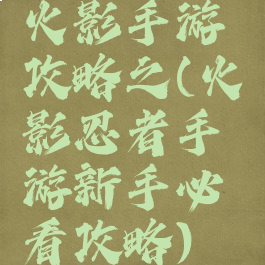 火影手游
攻略之(火
影忍者手
游新手必
看攻略)